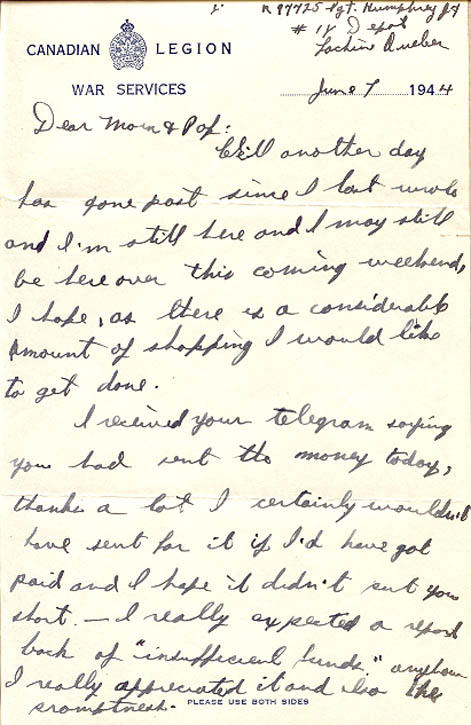 R 97725 Sgt. Humphrey J.
# 1Y Depot
Lachine Quebec
CANADIAN LEGION
WAR SERVICES
June 7 1944
Dear Mom & Pop:
Well another day
has gone past since I last wrote
and I'm still here and I may still
be here over this coming weekend,
I hope, as there is a considerable
amount of shopping I would like
to get done.
I received your telegram saying
you had sent the money today,
thanks a lot I certainly wouldn't
have sent for it if I'd have got
paid and I hope it didn't put you
short. — I really expected a report
back of "insufficient funds." anyhow
I really appreciated it and also the
promptness.
PLEASE USE BOTH SIDES